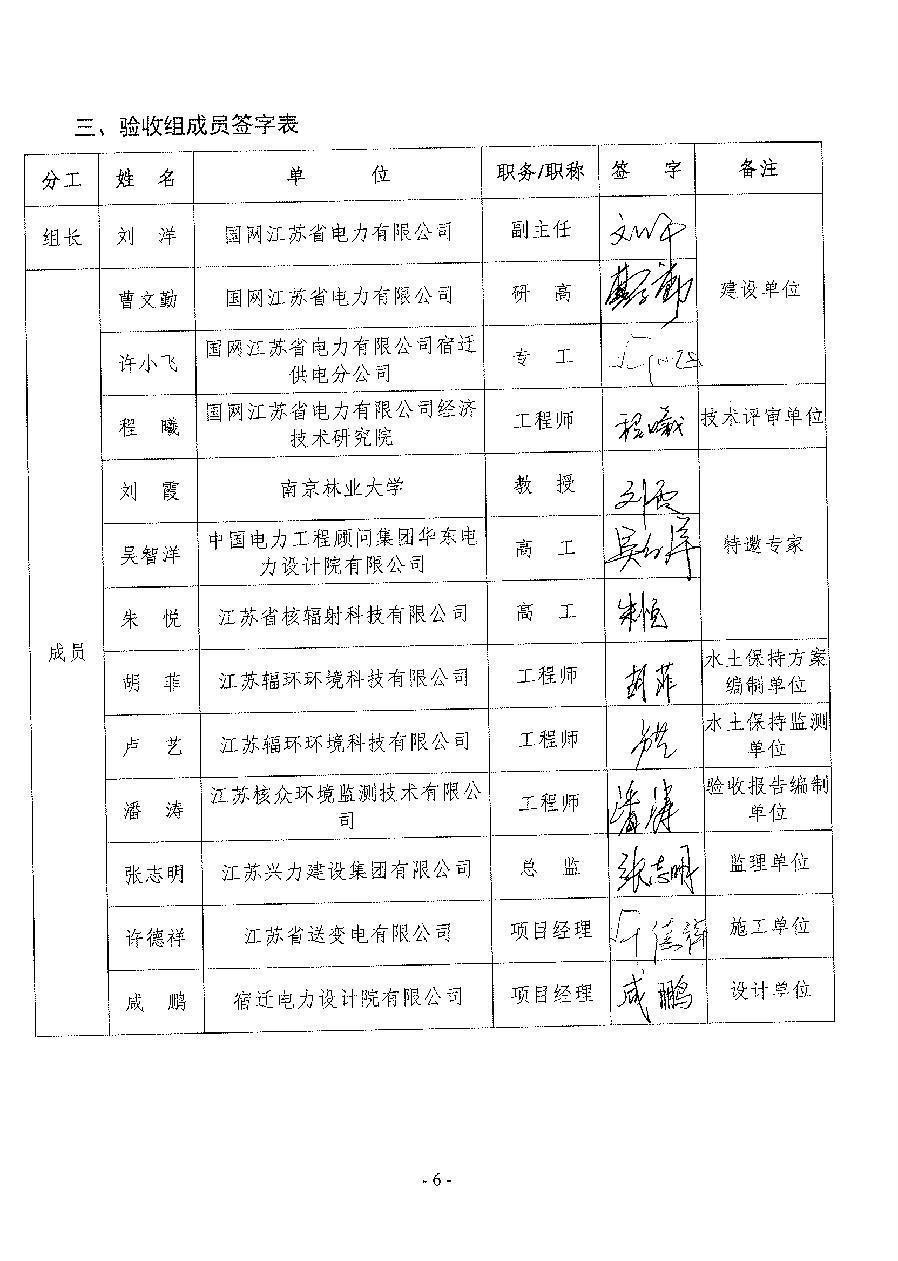 三、验收组成员签字表
分工 姓 名 单 位 职务/职称 签 字 备注
组长 刘 洋 国网江苏省电力有限公司 副主任
建设单位
成员
曹文勤 国网江苏省电力有限公司 研 高
许小飞 国网江苏省电力有限公司宿迁
供电分公司 专 工
程 曦 国网江苏省电力有限公司经济
技术研究院 工程师 程曦 技术评审单位
刘 霞 南京林业大学 教 授 刘霞
特邀专家
吴智洋 中国电力工程顾问集团华东电
力设计院有限公司 高 工
朱 悦 江苏省核辐射科技有限公司 高 工
胡 菲 江苏辐环环境科技有限公司 工程师 胡菲 水土保持方案
编制单位
卢 艺 江苏辐环环境科技有限公司 工程师 水土保持监测
单位
潘 涛 江苏核众环境监测技术有限公
司 工程师 潘涛 验收报告编制
单位
张志明 江苏兴力建设集团有限公司 总 监 张志明 监理单位
许德祥 江苏省送变电有限公司 项目经理 许德祥 施工单位
咸 鹏 宿迁电力设计院有限公司 项目经理 咸鹏 设计单位
- 6 -